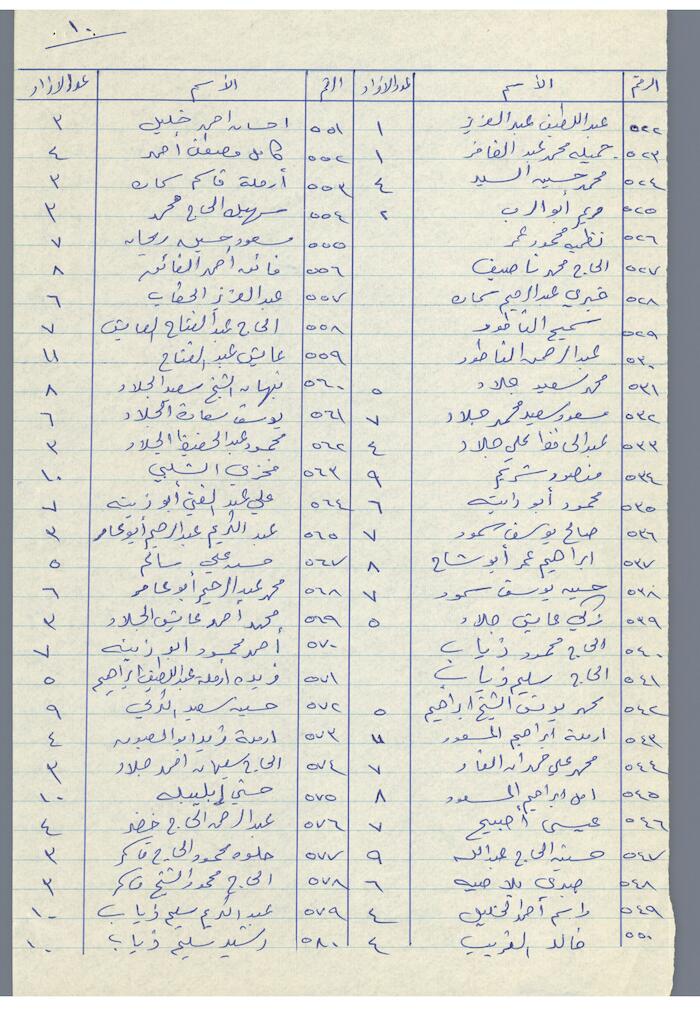 ١٠
الرقم الأسم عدد الأفراد الرقم الأسم عدد الأفراد
٥٢٢ عبد اللطيف عبد العزيز ١ ٥٥١ احسان احمد خليل ٣
٥٢٣ جميله محمد عبد الغافر ١ ٥٥٢ كامل مصطفى أحمد ٤
٥٢٤ محمد حسين السيد ٤ ٥٥٣ أرملة قاسم ٣
٥٢٥ مريم أبو الرب ٢ ٥٥٤ سهيل الحاج محمد ٣
٥٢٦ نظميه محمود عمر ٥٥٥ مسعود حسين ريحان ٧
٥٢٧ الحاج محمد ناصيف ٥٥٦ فائق أحمد الفائق ٨
٥٢٨ خيري عبد الرحيم ٥٥٧ عبد العزيز الحطاب ٦
٥٢٩ سميح الناطور ٥٥٨ الحاج عبد الفتاح العايش ٧
٥٣٠ عبد الرحمن الناطور ٥٥٩ عايش عبد الفتاح ١١
٥٣١ محمد سعيد جلاد ٥ ٥٦٠ نبهان الشيخ سعيد الجلاد ٨
٥٣٢ مسعود سعيد محمد جلاد ٧ ٥٦١ يوسف سعادة الجلاد ٦
٥٣٣ عبد الحافظ علي جلاد ٤ ٥٦٢ محمود عبد الحفيظ الجلاد ٣
٥٣٤ منصور شريم ٩ ٥٦٣ فخري الشلبي ١٠
٥٣٥ محمود أبو ٦ ٥٦٤ علي عبد الغني أبو زينه ٧
٥٣٦ صالح يوسف سمور ٧ ٥٦٥ عبد الكريم عبد الرحيم أبو عامر ٣
٥٣٧ ابراهيم عمر أبو شاح ٨ ٥٦٧ حسين علي سالم ٥
٥٣٨ حسين يوسف سمور ٧ ٥٦٨ محمد عبد الرحيم أبو عامر ٦
٥٣٩ زكي عايش جلاد ٥ ٥٦٩ محمد أحمد عايش الجلاد ٣
٥٤٠ الحاج محمود ذياب ٥٧٠ أحمد محمود ابو زينه ٧
٥٤١ الحاج سليم ذياب ٥٧١ فريده ارملة عبد اللطيف ابراهيم ٥
٥٤٢ محمد يونس الشيخ ابراهيم ٥ ٥٧٢ حسين سعيد ٩
٥٤٣ ارملة ابراهيم المسعود ١١ ٥٧٣ ارملة ابو ٤
٥٤٤ محمد علي حمدان الفار ٧ ٥٧٤ الحاج سليمان احمد جلاد ٣
٥٤٥ امل ابراهيم المسعود ٨ ٥٧٥ حسني ١٠
٥٤٦ عيسى أصبيح ٧ ٥٧٦ عبد الرحمن الحاج خضر ٤
٥٤٧ حسين الحاج عبدالله ٩ ٥٧٧ حلوه محمود الحاج قاسم ٣
٥٤٨ صبري ٦ ٥٧٨ الحاج محمود الشيخ قاسم ٣
٥٤٩ راسم أحمد الخليل ٤ ٥٧٩ عبد الكريم سليم ذياب ١٠
٥٥٠ خالد الغريب ٤ ٥٨٠ رشيد سليم ذياب ١٠